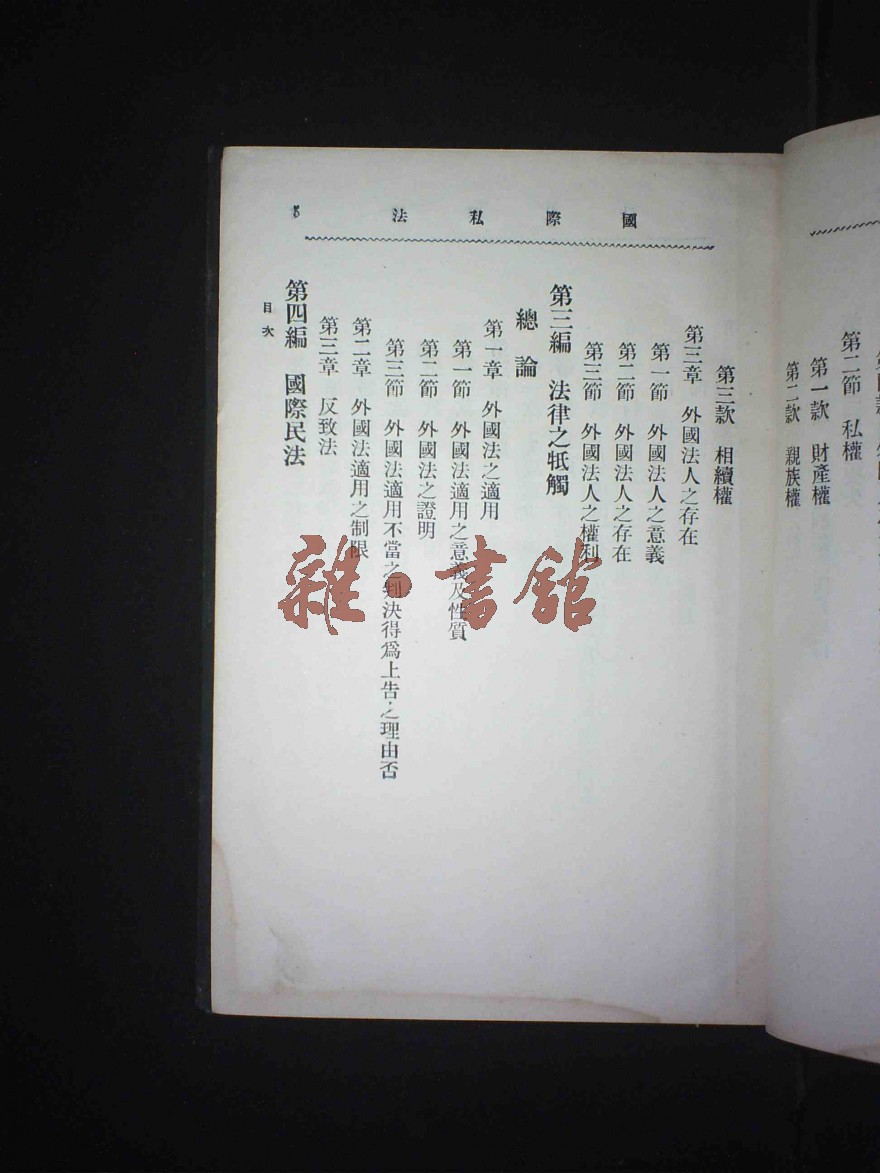 第二節　私權
第一款　財產權
第二款　親族權
國際私法
第三款　相續權
第三章　外國法人之存在
第一節　外國法人之意義
第二節　外國法人之存在
第三節　外國法人之權利
第三編　法律之牴觸
總論
第一章　外國法之適用
第一節　外國法適用之意義及性質
第二節　外國法之證明
第三節　外國法適用不當之判決得爲上告之理由否
第二章　外國法適用之制限
第三章　反致法
第四編　國際民法
目次
雜·書館